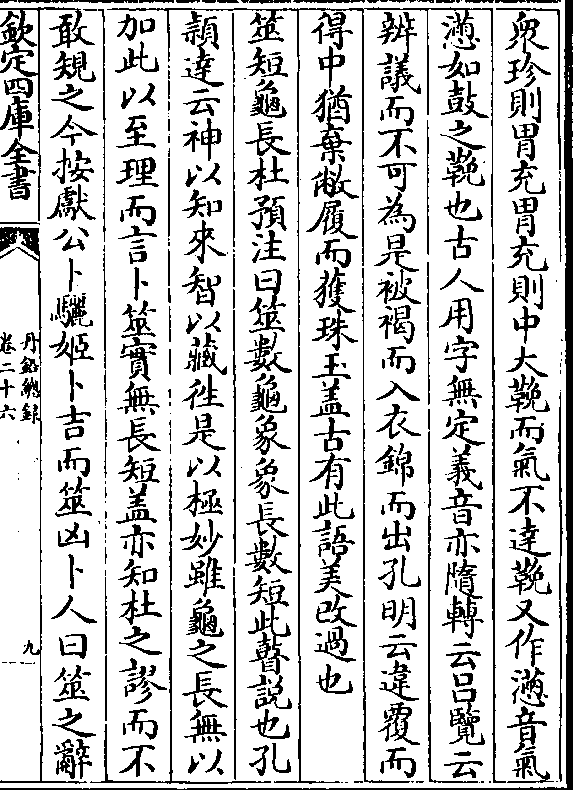 衆珍則胃充胃充則中大鞔而氣不達鞔又作懣音氣
懣如鼓之鞔也古人用字無定義音亦隨轉云呂覽云
辨議而不可為是被褐而入衣錦而出孔明云違覆而
得中猶棄敝履而獲珠玉盖古有此語美改過也
筮短龜長杜預注曰筮數龜象象長數短此瞽説也孔
穎達云神以知來智以藏徃是以極妙雖龜之長無以
加此以至理而言卜筮實無長短盖亦知杜之謬而不
敢規之今按獻公卜驪姬卜吉而筮凶卜人曰筮之辭
欽定四庫全書
丹鉛總錄
卷二十六
九